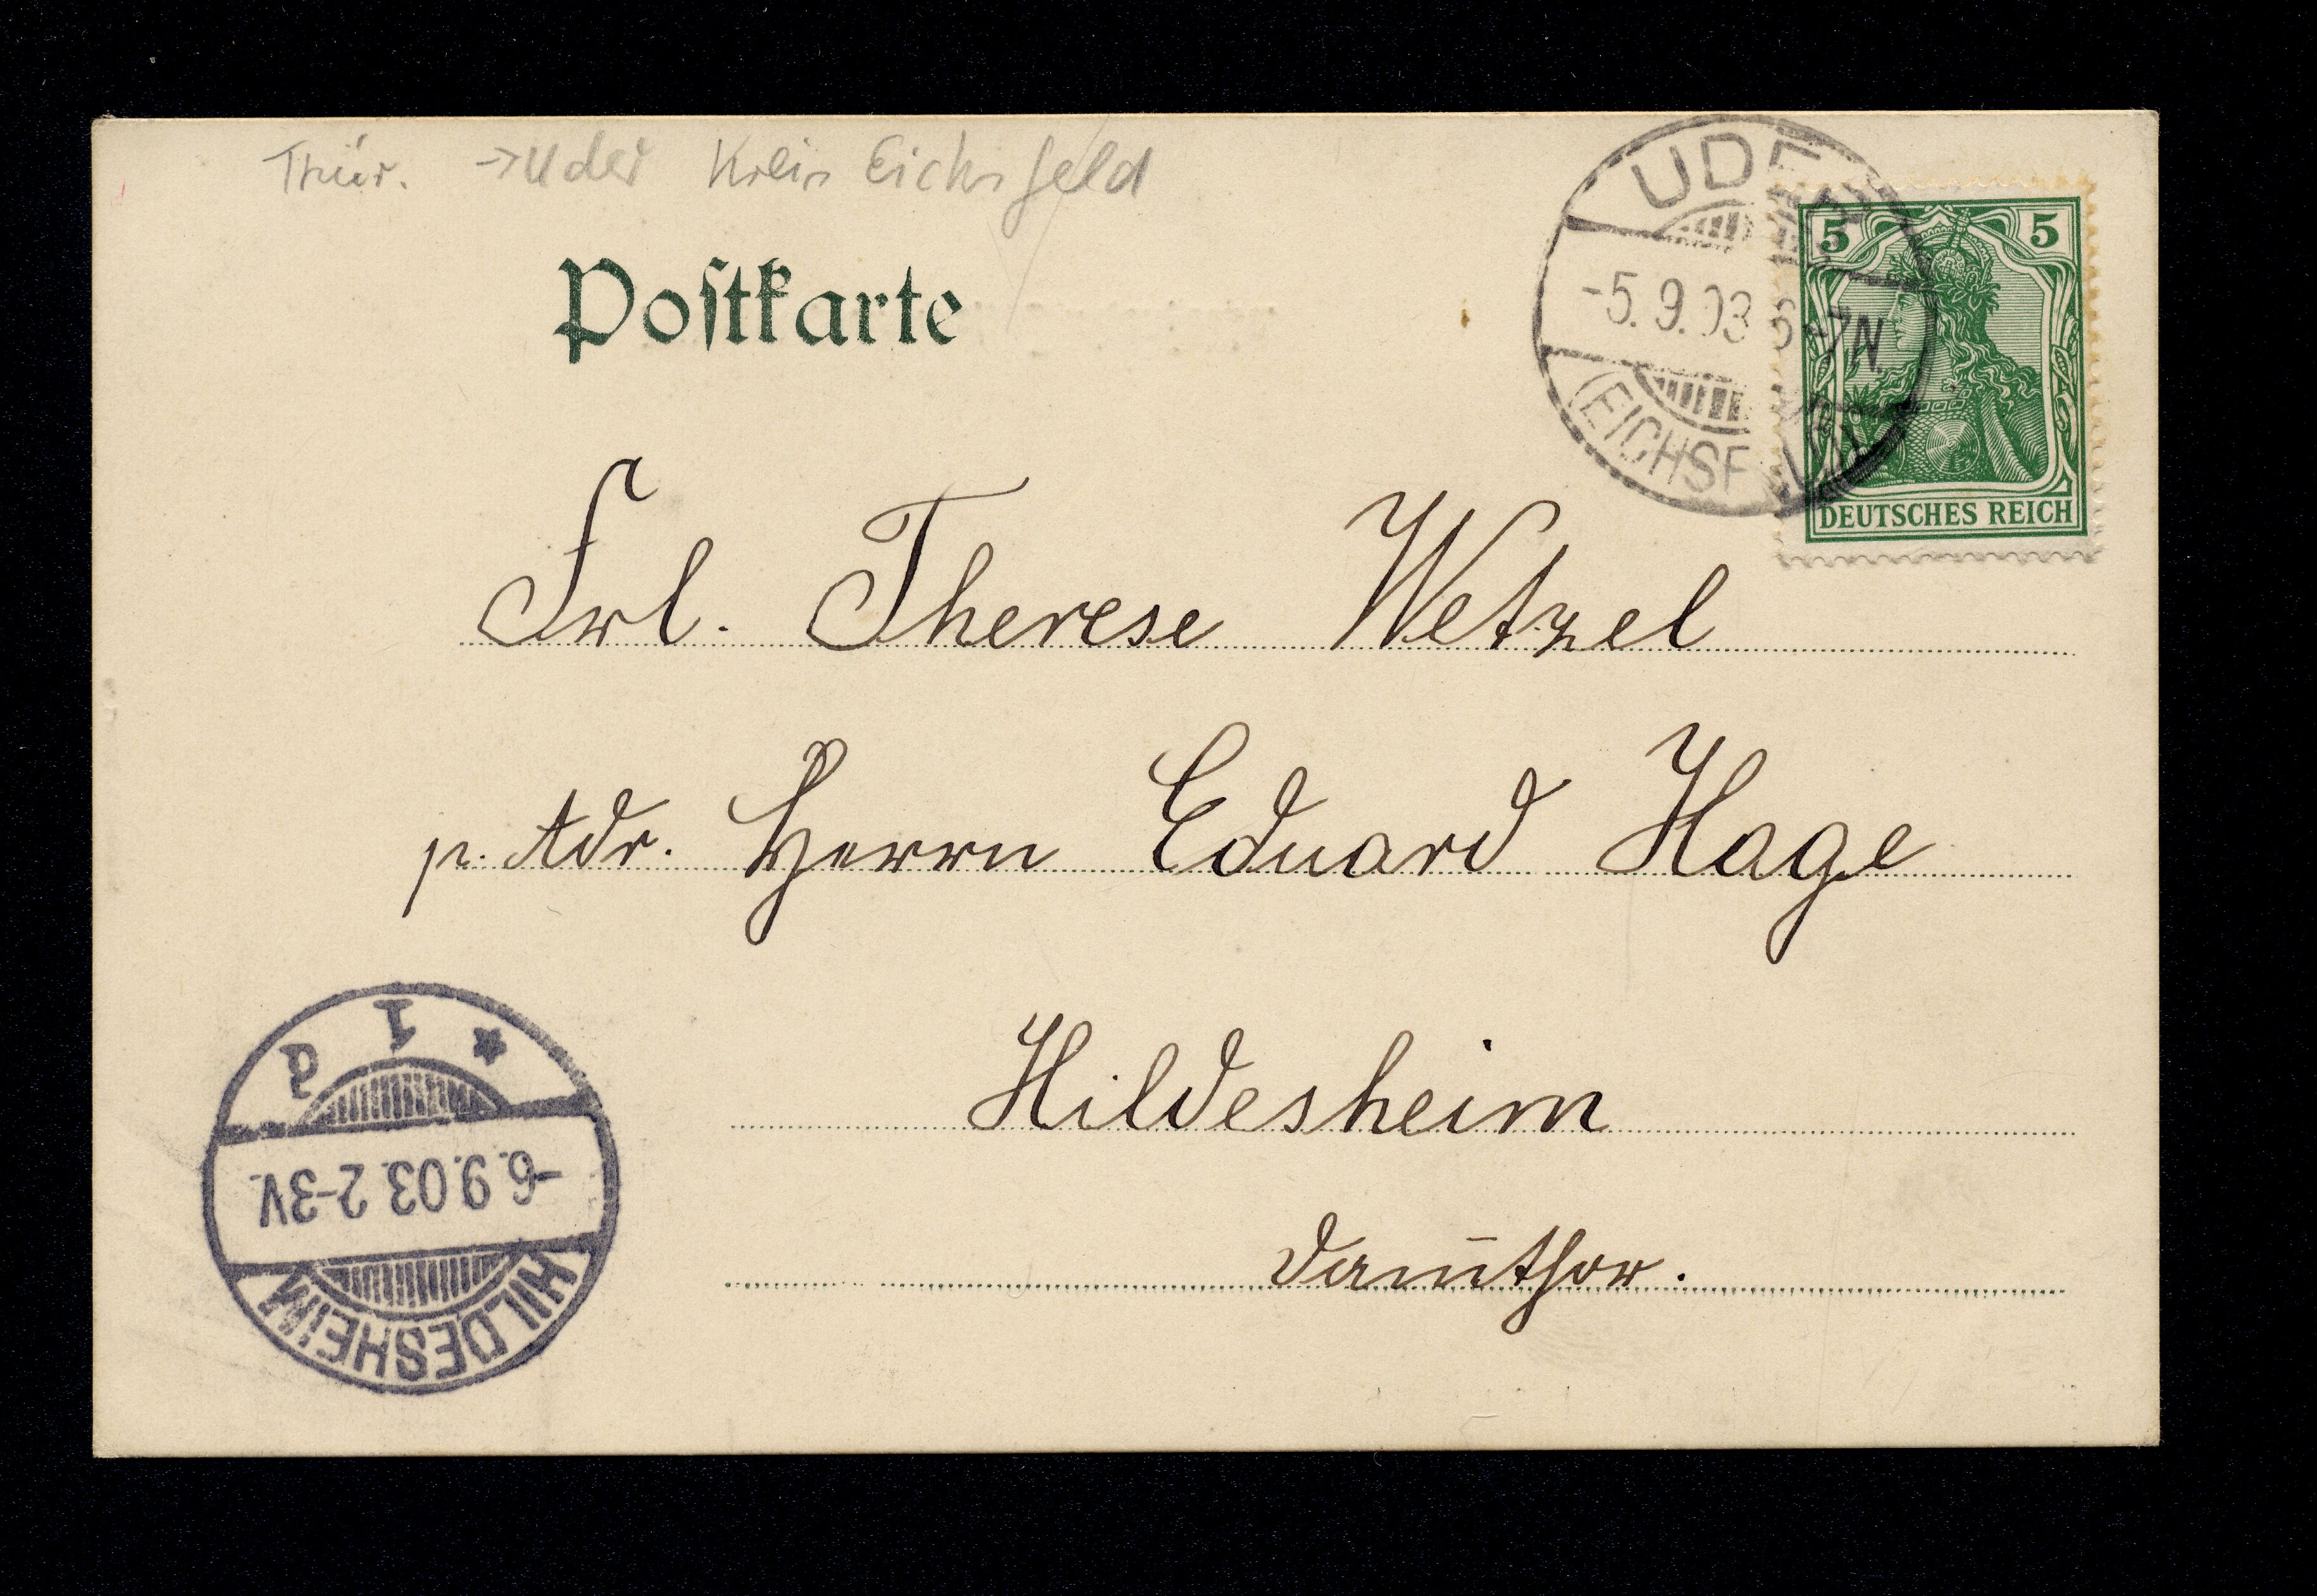 Thür. → Uder Kreis Eichsfeld
UDER
-5.9.03 6-7N.
(EICHSFELD)
5 5
DEUTSCHES REICH
Poſtkarte
Frl. Therese Wetzel
p. Adr. Herrn Eduard Hage
Hildesheim
Dam̄thor.
HILDESHEIM
-6.9.03. 2-3V.
* 1 d